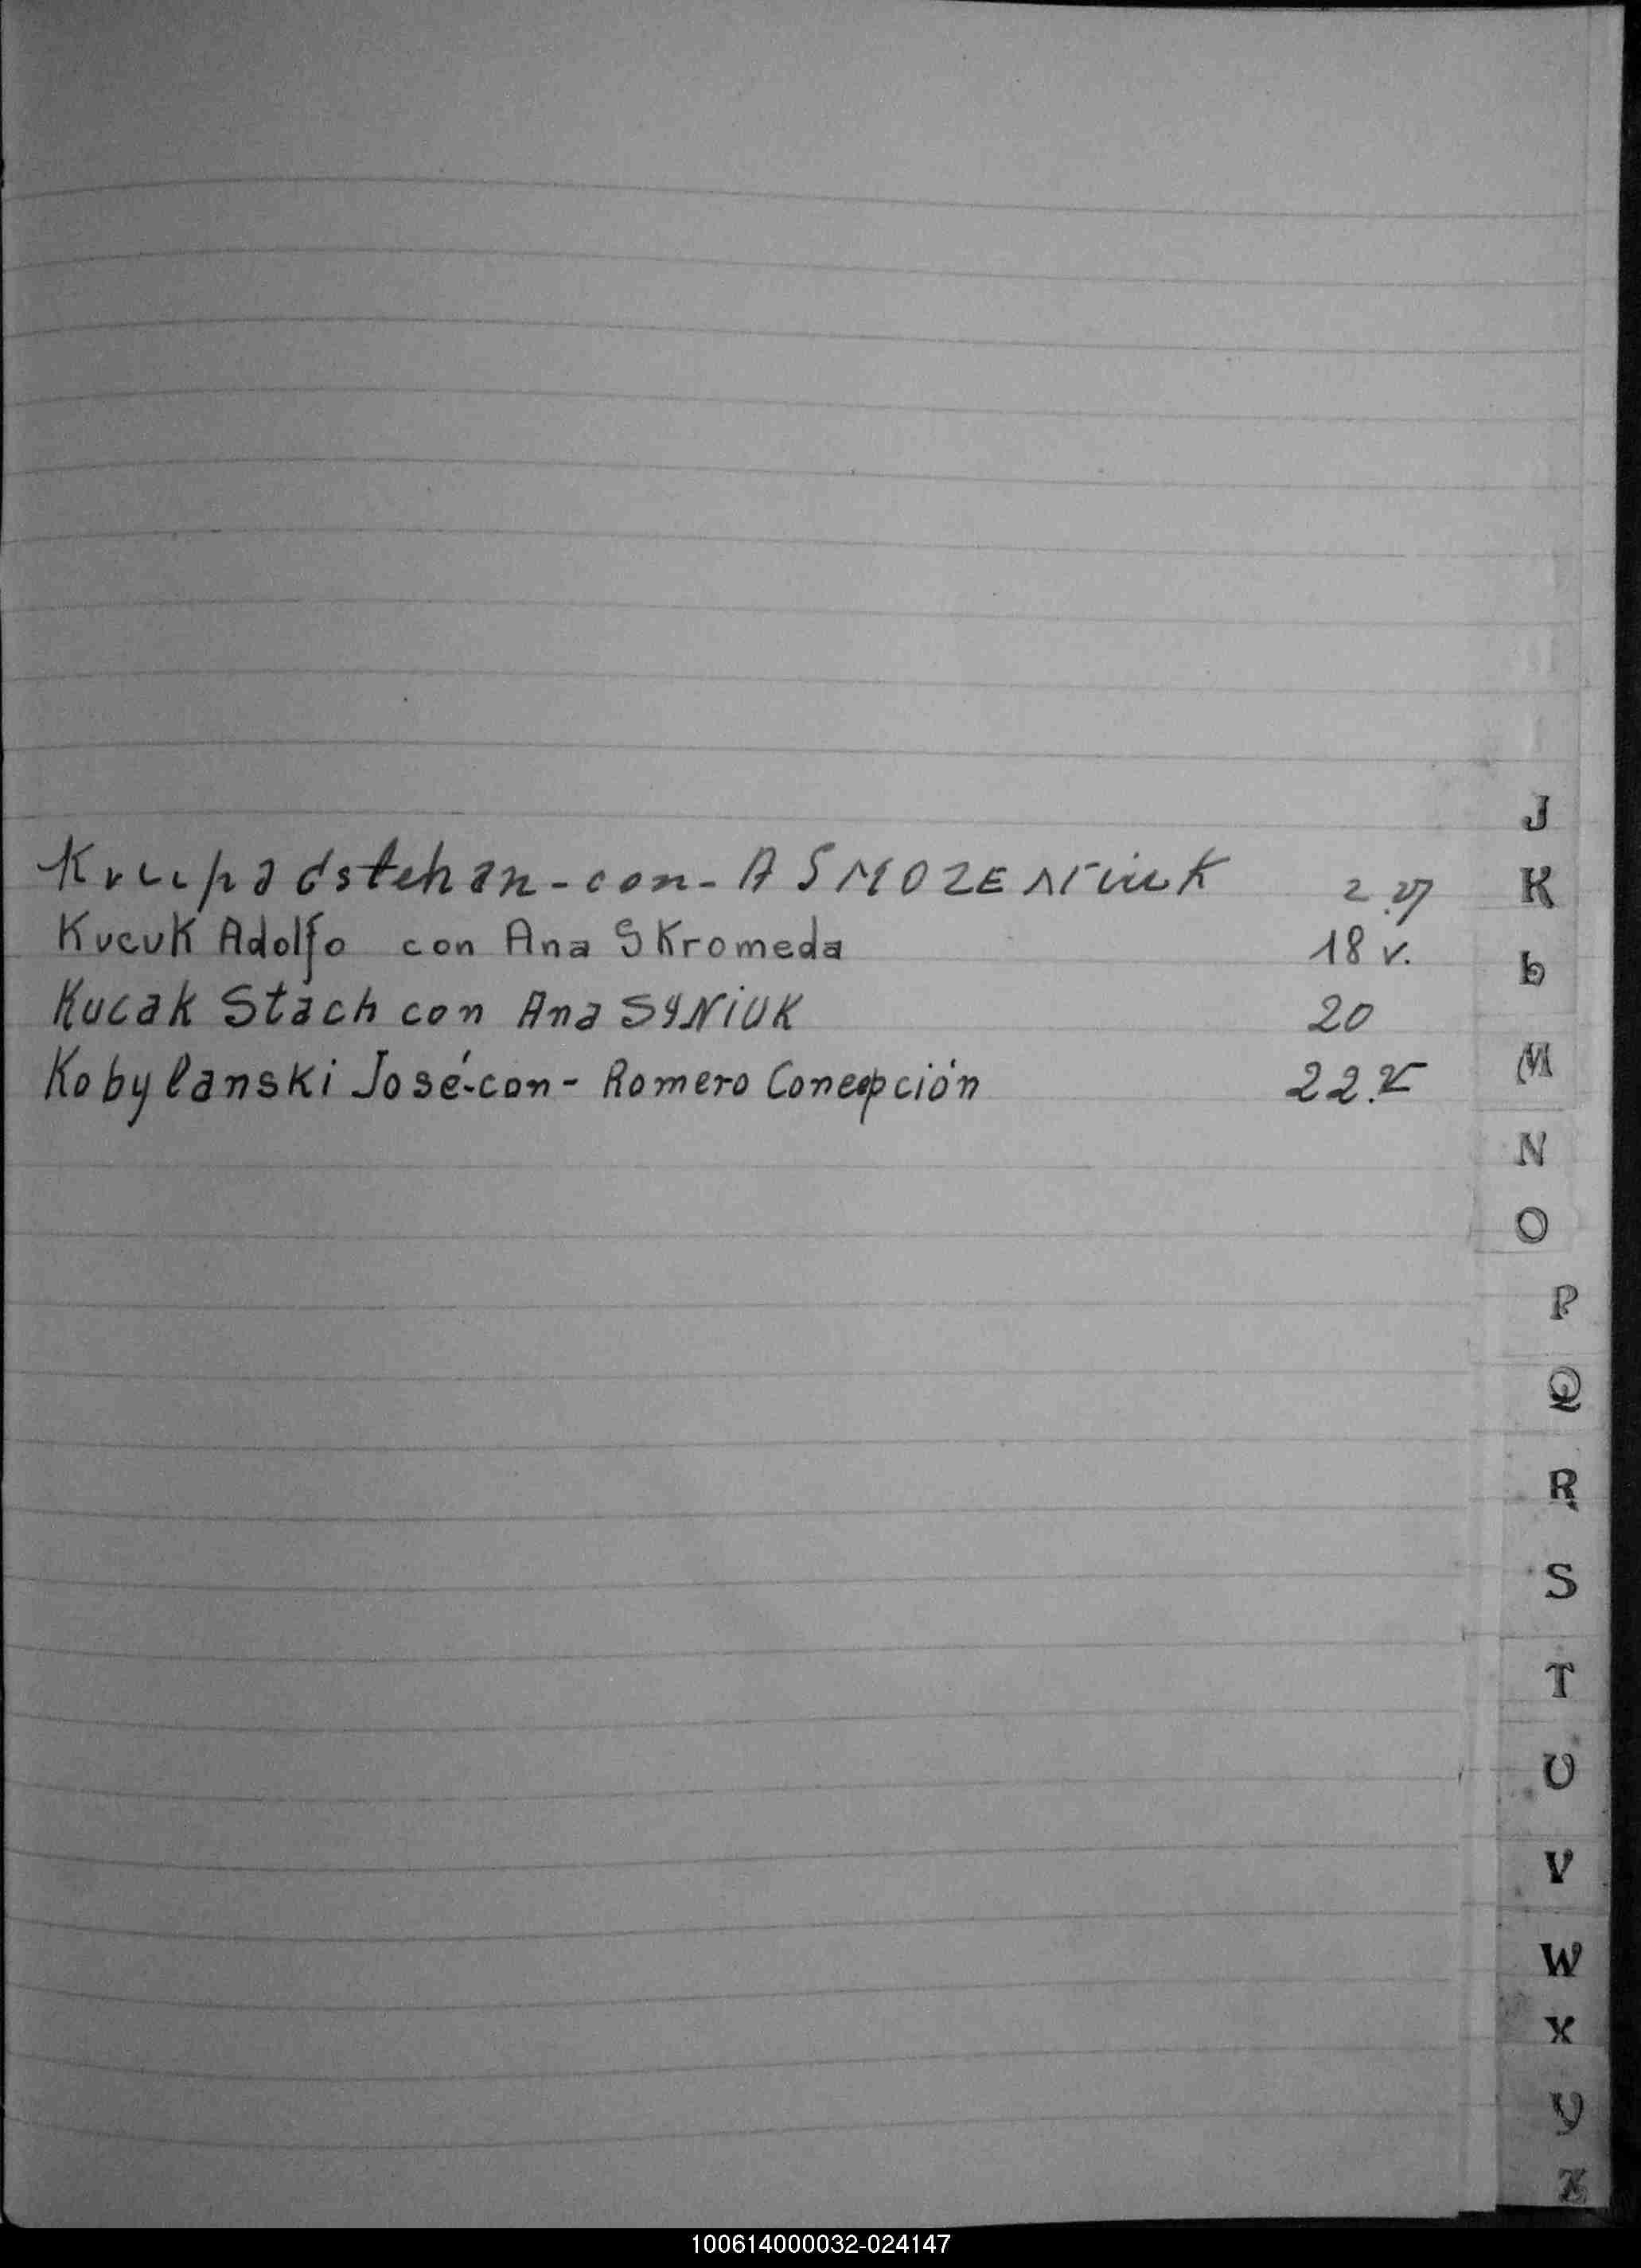 Krupa dstehan - con - A SMOZENiuK 2.v
KucuK Adolfo con Ana SKromeda 18 v.
Kucak Stach con Ana SYNiUK 20
Kobylanski José-con- Romero Concepción 22.v
J
K
L
M
N
O
P
Q
R
S
T
U
V
W
X
Y
Z
100614000032-024147